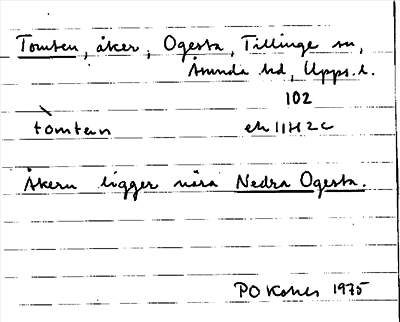 Tomten, åker, Ogesta, Tillinge sn,
Åsunda hd, Upps. l.
102
tòmtən
ek 11H2c
Åkern ligger nära Nedra Ogesta.
PO 1975